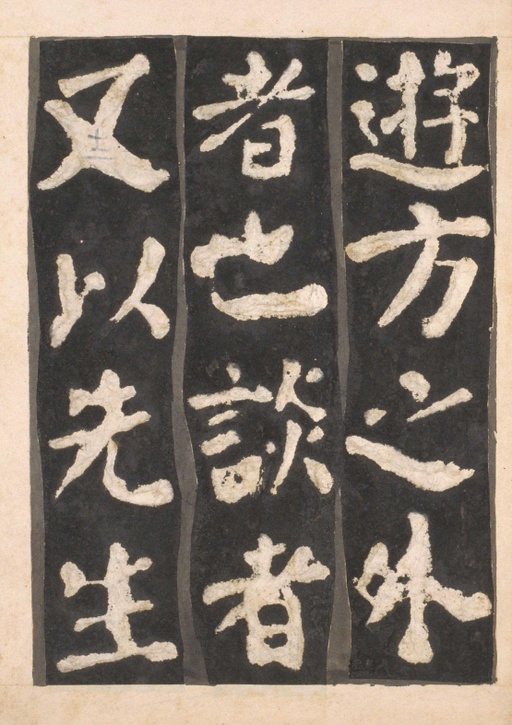 遊方之外
者也談者
又以先生